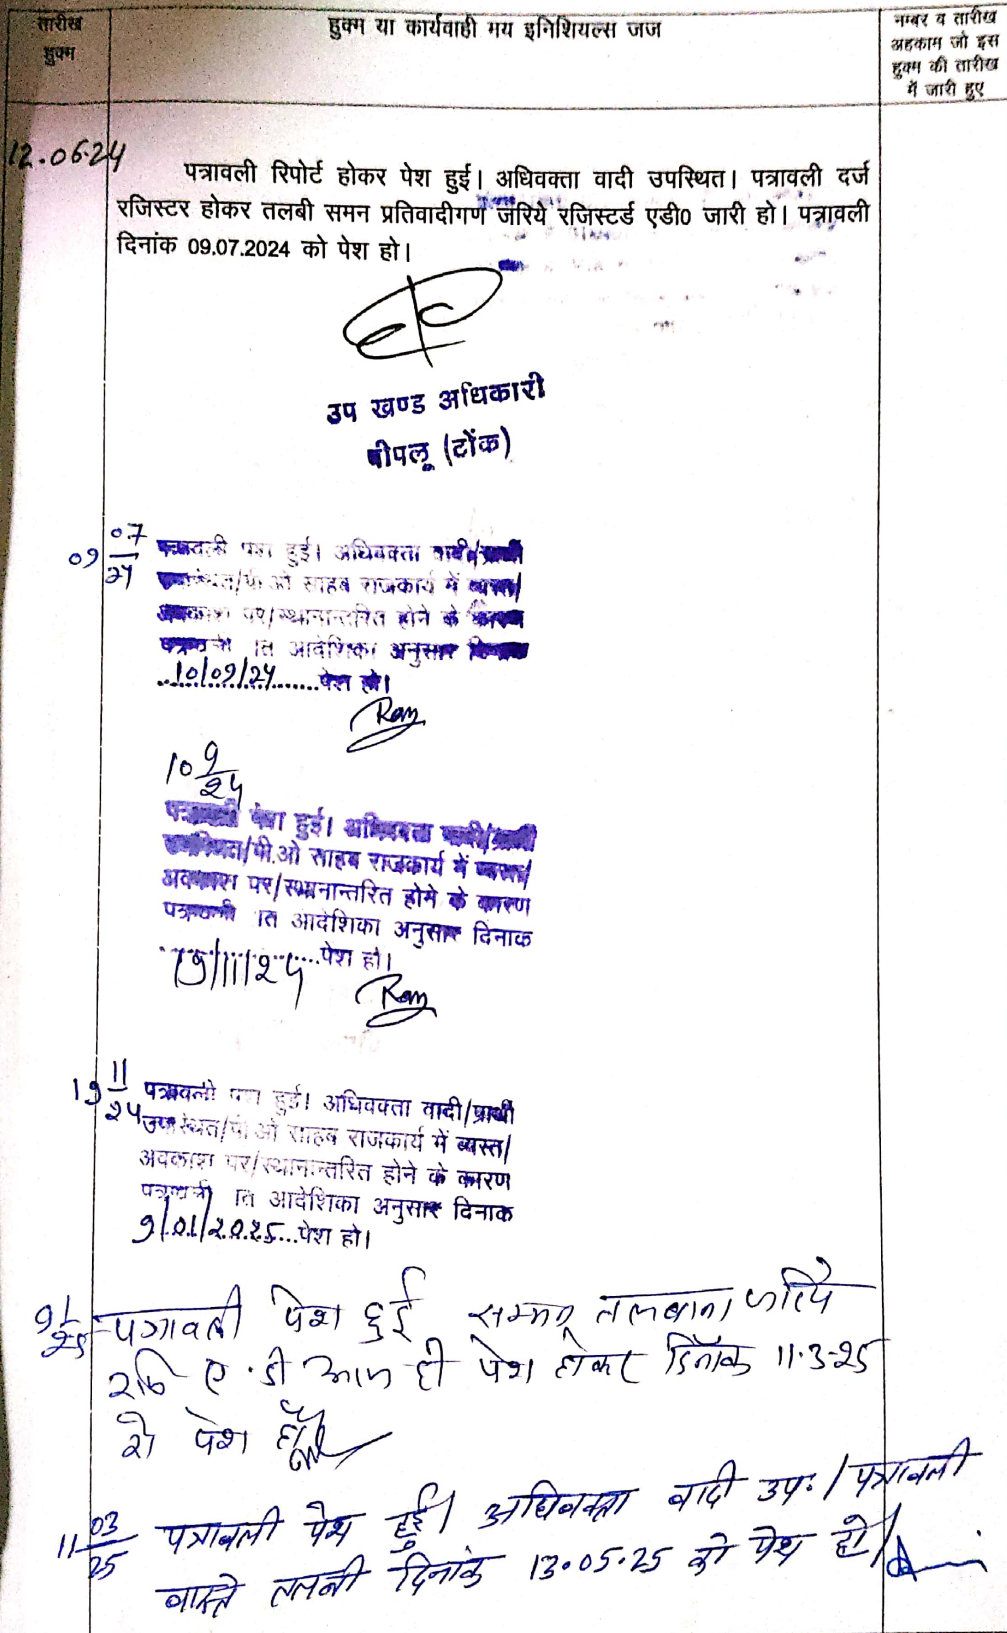 तारीख हुक्म
हुक्म या कार्यवाही मय इनिशियल्स जज
नम्बर व तारीख
अहकाम जो इस
हुक्म की तारीख
में जारी हुए
12.06.24
पत्रावली रिपोर्ट होकर पेश हुई। अधिवक्ता वादी उपस्थित। पत्रावली दर्ज
रजिस्टर होकर तलबी समन प्रतिवादीगण जरिये रजिस्टर्ड एडी0 जारी हो। पत्रावली
दिनांक 09.07.2024 को पेश हो।
उप खण्ड अधिकारी
पीपलू (टोंक)
09 07/24
पत्रावली पेश हुई। अधिवक्ता वादी/प्रार्थी
उपस्थित/पी.ओ साहब राजकार्य में व्यस्त/
अवकाश पर/स्थानान्तरित होने के कारण
पत्रावली आदेशिका अनुसार दिनाक
10/09/24......पेश हो।
10 9/24
पत्रावली पेश हुई। अधिवक्ता वादी/प्रार्थी
उपस्थित/पी.ओ साहब राजकार्य में व्यस्त/
अवकाश पर/स्थानान्तरित होने के कारण
पत्रावली आदेशिका अनुसार दिनाक
19/11/24......पेश हो।
19 11/24
पत्रावली पेश हुई। अधिवक्ता वादी/प्रार्थी
उपस्थित/पी.ओ साहब राजकार्य में व्यस्त/
अवकाश पर/स्थानान्तरित होने के कारण
पत्रावली आदेशिका अनुसार दिनाक
9/01/2025...पेश हो।
9 1/25
पत्रावली पेश हुई सम्मन तलबाना जरिये
ए.डी आज ही पेश होकर दिनाँक 11.3.25
को पेश हो
11 03/25
पत्रावली पेश हुई। अधिवक्ता वादी उप:। पत्रावली
वास्ते तलबी दिनांक 13.05.25 को पेश हो।